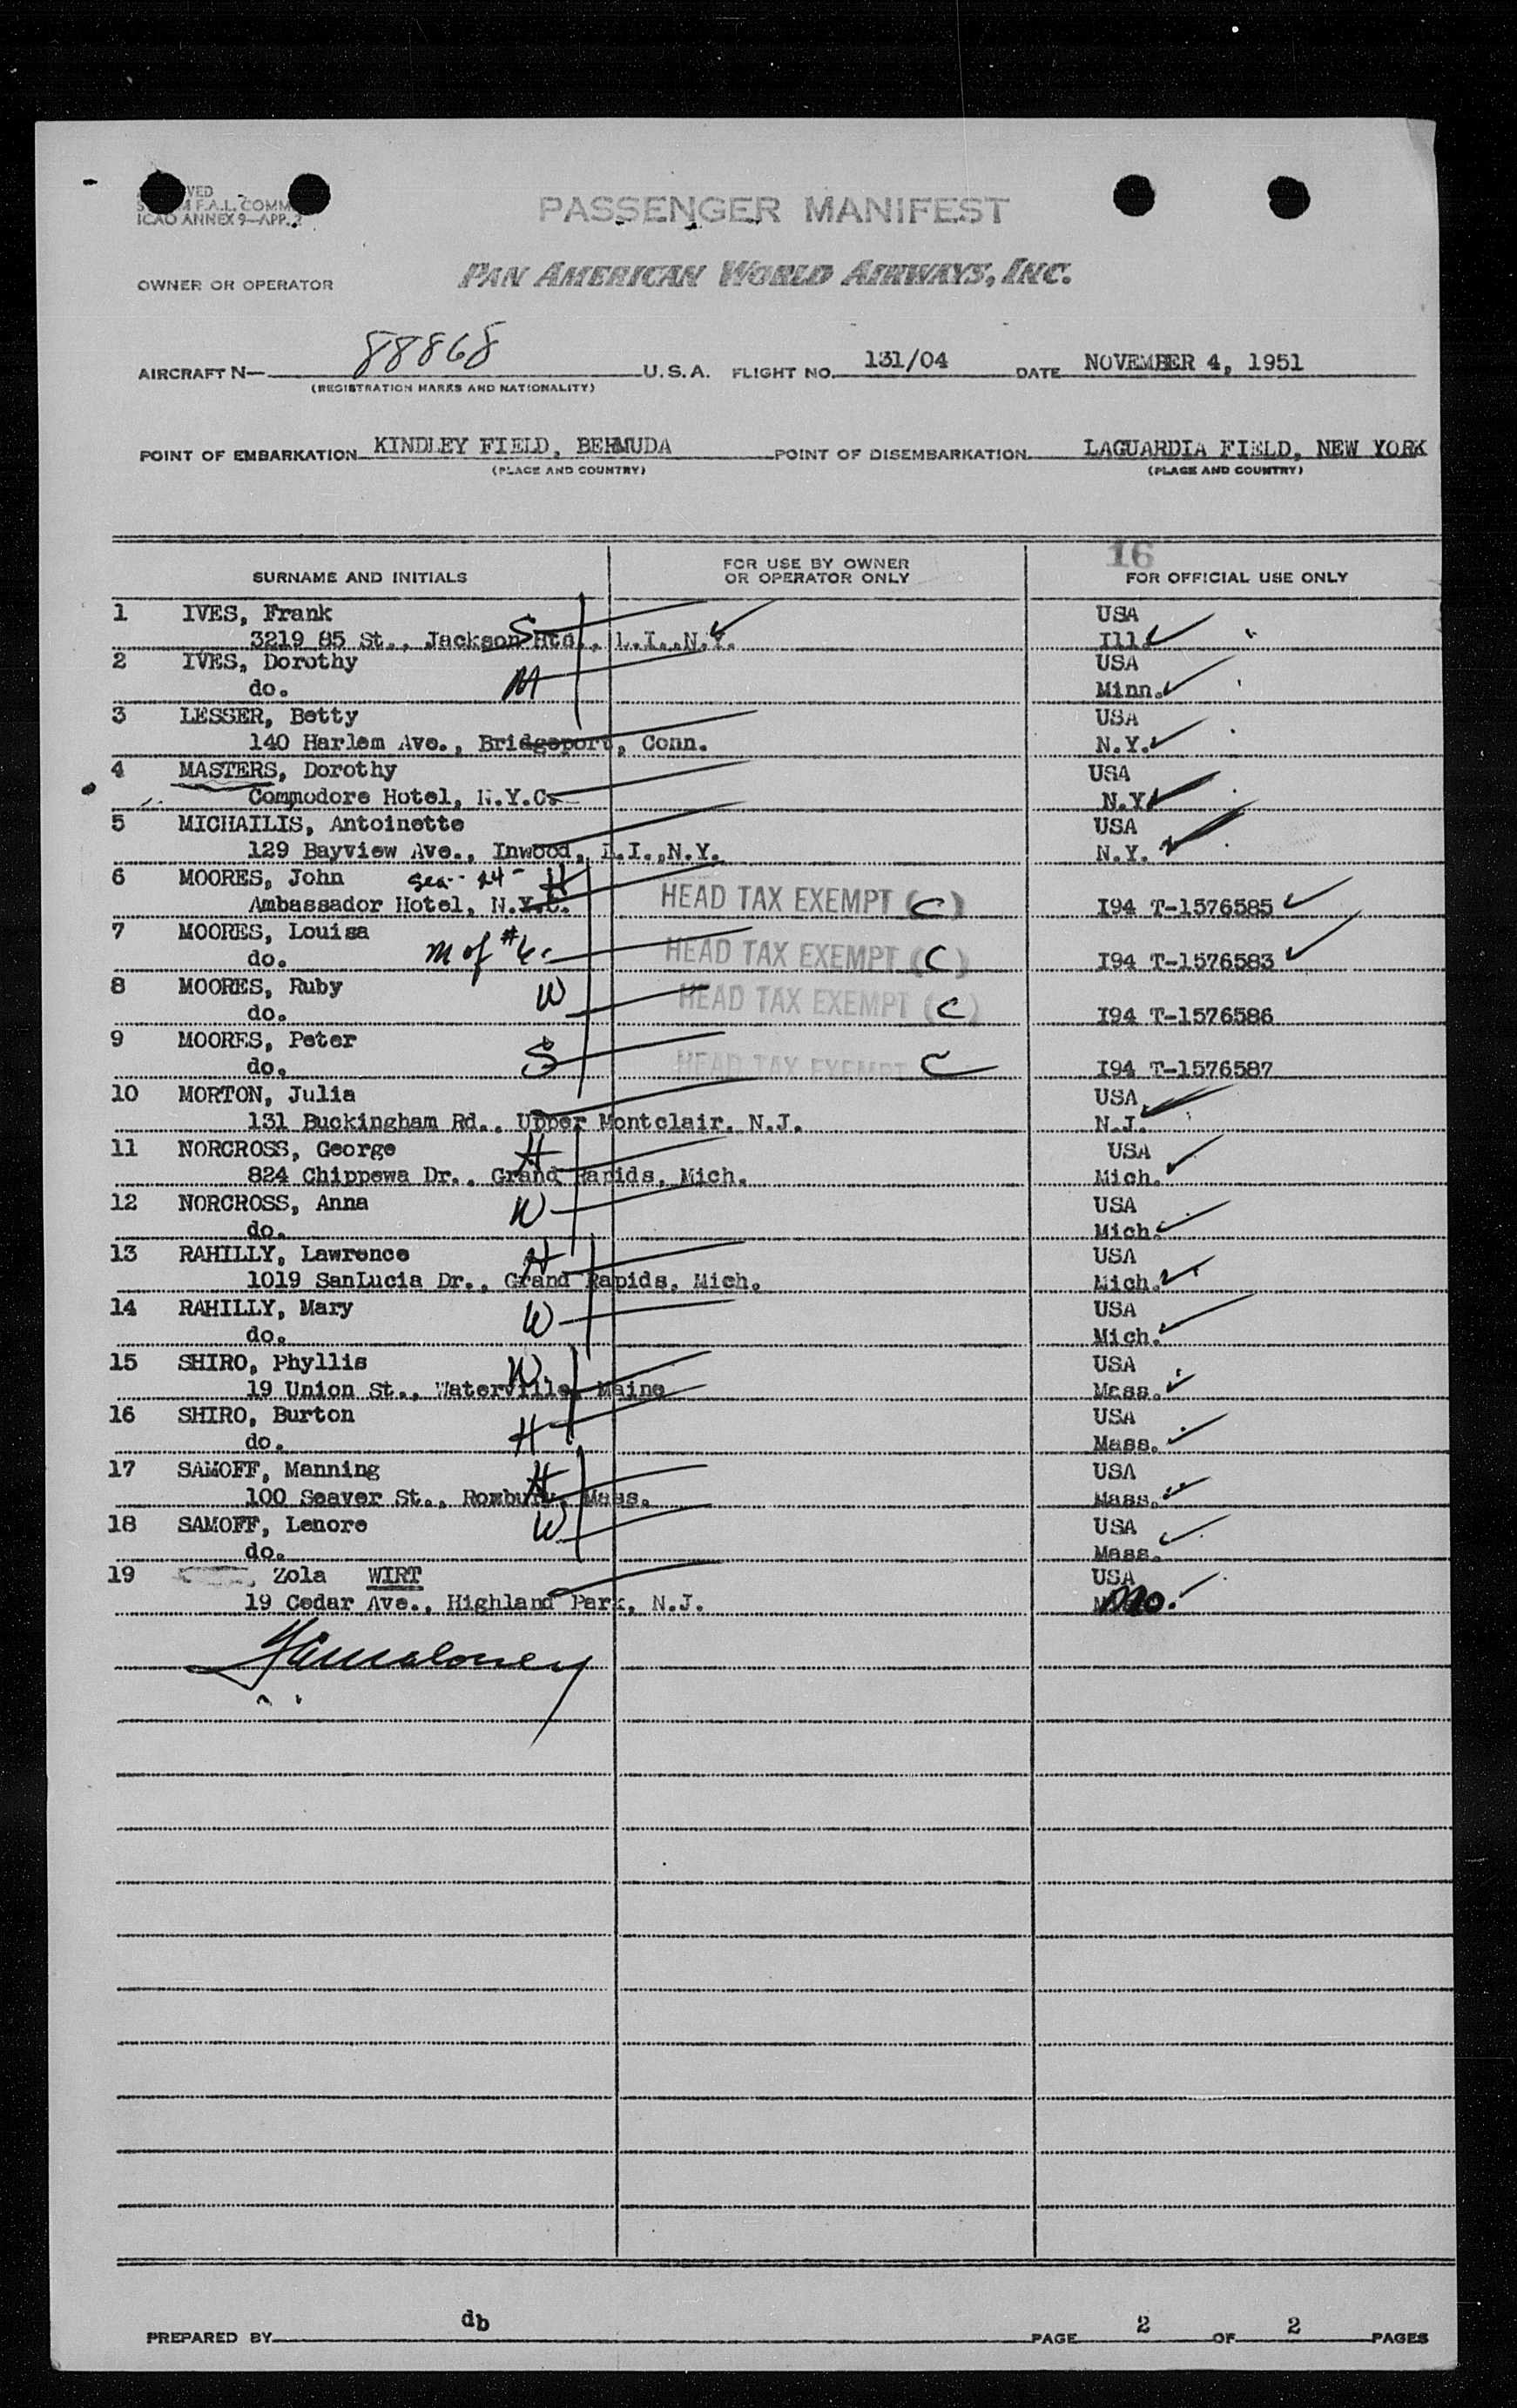 F.A.L. COMM
ICAO ANNEX 9—APP. 2
PASSENGER MANIFEST
OWNER OR OPERATOR PAN AMERICAN WORLD AIRWAYS, INC.
AIRCRAFT N— 88868 U.S.A. FLIGHT NO. 131/04 DATE NOVEMBER 4, 1951
(REGISTRATION MARKS AND NATIONALITY)
POINT OF EMBARKATION KINDLEY FIELD, BERMUDA POINT OF DISEMBARKATION LAGUARDIA FIELD, NEW YORK
(PLACE AND COUNTRY) (PLACE AND COUNTRY)
16
SURNAME AND INITIALS FOR USE BY OWNER OR OPERATOR ONLY FOR OFFICIAL USE ONLY
1 IVES, Frank USA
3219 85 St., Jackson Htd., L.I.,N.Y. S Ill.
2 IVES, Dorothy USA
do. M Minn.
3 LESSER, Betty USA
140 Harlem Ave., Bridgeport, Conn. N.Y.
4 MASTERS, Dorothy USA
Commodore Hotel, N.Y.C. N.Y.
5 MICHAILIS, Antoinette USA
129 Bayview Ave., Inwood, L.I.,N.Y. N.Y.
6 MOORES, John 24 H
Ambassador Hotel, N.Y.C. HEAD TAX EXEMPT (C) I94 T-1576585
7 MOORES, Louisa
do. M of #6 HEAD TAX EXEMPT (C) I94 T-1576583
8 MOORES, Ruby W HEAD TAX EXEMPT (C)
do. I94 T-1576586
9 MOORES, Peter
do. S HEAD TAX EXEMPT C I94 T-1576587
10 MORTON, Julia USA
131 Buckingham Rd., Upper Montclair, N.J. N.J.
11 NORCROSS, George H USA
824 Chippewa Dr., Grand Rapids, Mich. Mich.
12 NORCROSS, Anna W USA
do. Mich.
13 RAHILLY, Lawrence H USA
1019 SanLucia Dr., Grand Rapids, Mich. Mich.
14 RAHILLY, Mary W USA
do. Mich.
15 SHIRO, Phyllis W. USA
19 Union St., Waterville, Maine Mass.
16 SHIRO, Burton USA
do. H Mass.
17 SAMOFF, Manning H USA
100 Seaver St., Roxbury, Mass. Mass.
18 SAMOFF, Lenore W USA
do. Mass.
19 , Zola WIRT USA
19 Cedar Ave., Highland Park, N.J. Mo.
PREPARED BY db PAGE 2 OF 2 PAGES